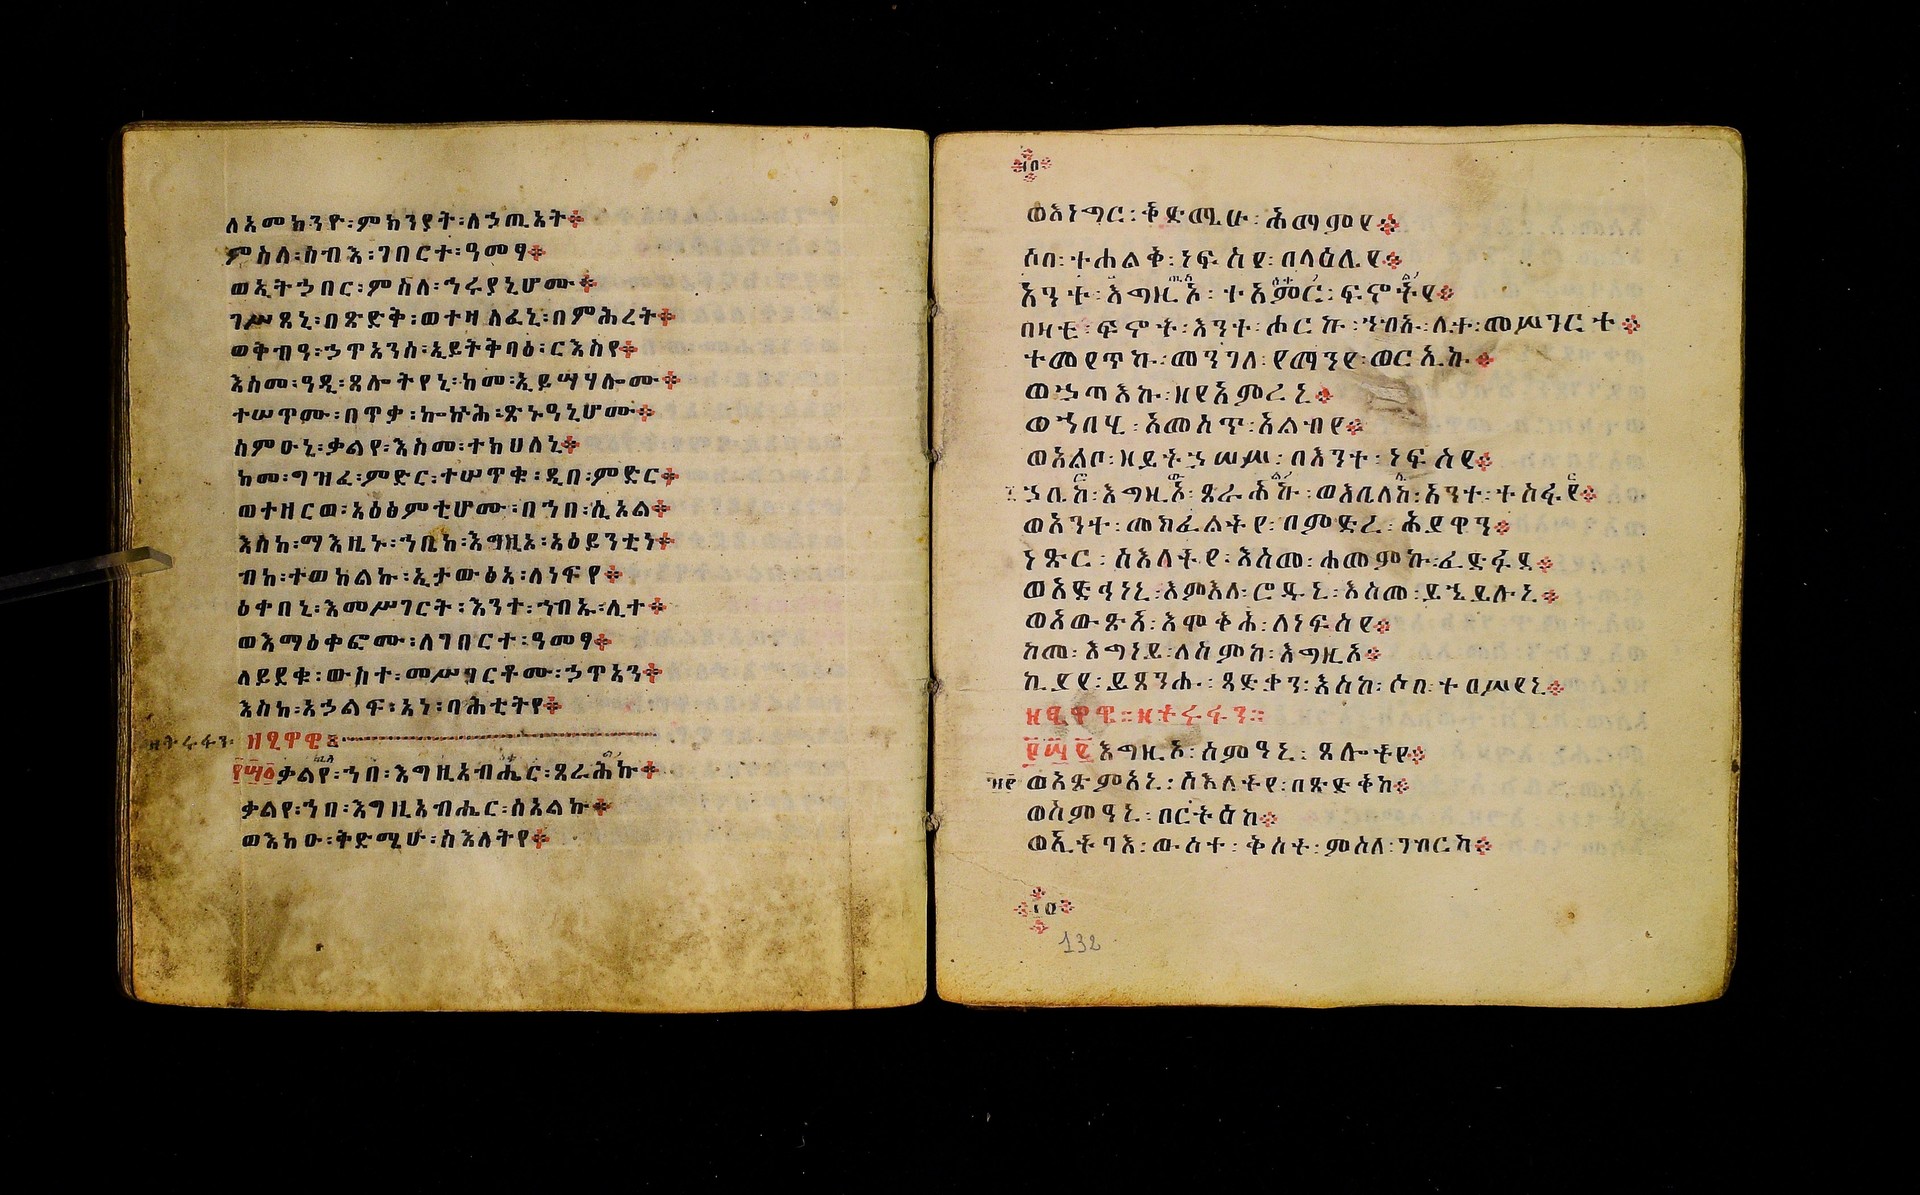 ለአመክንዮ፡ምክንያት፡ለኃጢአት፨
ምስለ፡ሰብእ፡ገበርተ፡ዓመፃ፨
ወኢትኃበር፡ምስለ፡ኅሩያኒሆሙ፨
ገሥጸኒ፡በጽድቅ፡ወተዛለፈኒ፡በምሕረት፨
ወቅብዓ፡ኃጥአንሰ፡ኢይትቅባዕ፡ርእስየ፨
እስመ፡ዓዲ፡ጸሎትየኒ፡ከመ፡ኢይሣሃሎሙ፨
ተሠጥሙ፡በጥቃ፡ኰኵሕ፡ጽኑዓኒሆሙ፨
ስምዑኒ፡ቃልየ፡እስመ፡ተክህለኒ፨
ከመ፡ግዝፈ፡ምድር፡ተሠጥቁ፡ዲበ፡ምድር፨
ወተዘርወ፡አዕፅምቲሆሙ፡በኀበ፡ሲኦል፨
እስከ፡ማእዚኑ፡ኀቤከ፡እግዚኦ፡አዕይንቲነ፨
ብከ፡ተወከልኩ፡ኢታውፅአ፡ለነፍየ፨
ዕቀበኒ፡እመሥገርት፡እንተ፡ኀብኡ፡ሊተ፨
ወእማዕቀፎሙ፡ለገበርተ፡ዓመፃ፨
ለይደቁ፡ውስተ፡መሥገርቶሙ፡ኃጥአን፨
እስከ፡አኃልፍ፡አነ፡በሕቲትየ፨
ዘትሩፋን፡ ዘዒዋዊ፨
፻፵፩ቃልየ፡ኀበ፡እግዚአብሔር፡ጸራሕኩ፨
ቃልየ፡ኀበ፡እግዚአብሔር፡ሰአልኩ፨
ወእክዑ፡ቅድሜሁ፡ስእለትየ፨
፲፬
ወእነግር፡ቅድሜሁ፡ሕማምየ፨
ሶበ፡ተሐልቅ፡ነፍስየ፡በላዕሌየ፨
አንተ፡እግዚኦ፡ተአምር፡ፍኖትየ፨
በዛቲ፡ፍኖት፡እንተ፡ሖርኩ፡ኀብኡ፡ሊተ፡መሥገርተ፨
ተመየጥኩ፡መንገለ፡የማንየ፡ወርኢኩ፨
ወኃጣእኩ፡ዘየአምረኒ፨
ወኀበሂ፡አመስጥ፡አልብየ፨
ወአልቦ፡ዘይትኃሠሥ፡በእንተ፡ነፍስየ፨
ኃቤከ፡እግዚኦ፡ጸራሕኩ፡ወእቤለከ፡አንተ፡ተስፋየ፨
ወአንተ፡መክፈልትየ፡በምድረ፡ሕያዋን፨
ነጽር፡ስእለትየ፡እስመ፡ሐመምኩ፡ፈድፋደ፨
ወአድኅነኒ፡እምእለ፡ሮዱኒ፡እስመ፡ይኄይሉኒ፨
ወአውጽአ፡እሞቅሕ፡ለነፍስየ፨
ከመ፡እግነይ፡ለስምከ፡እግዚኦ፨
ኪያየ፡ይጸንሑ፡ጻድቃን፡እስከ፡ሶበ፡ተዐሥየኒ፨
ዘዒዋዊ፡፡ዘትሩፋን፡፡
፻፵፪እግዚኦ፡ስምዓኒ፡ጸሎትየ፨
ወአጽምአኒ፡ስእለትየ፡በጽድቅከ፨
ወስምዓኒ፡በርትዕከ፨
ወኢትባእ፡ውስተ፡ቅስት፡ምስለ፡ገብርከ፨
፲፬
132